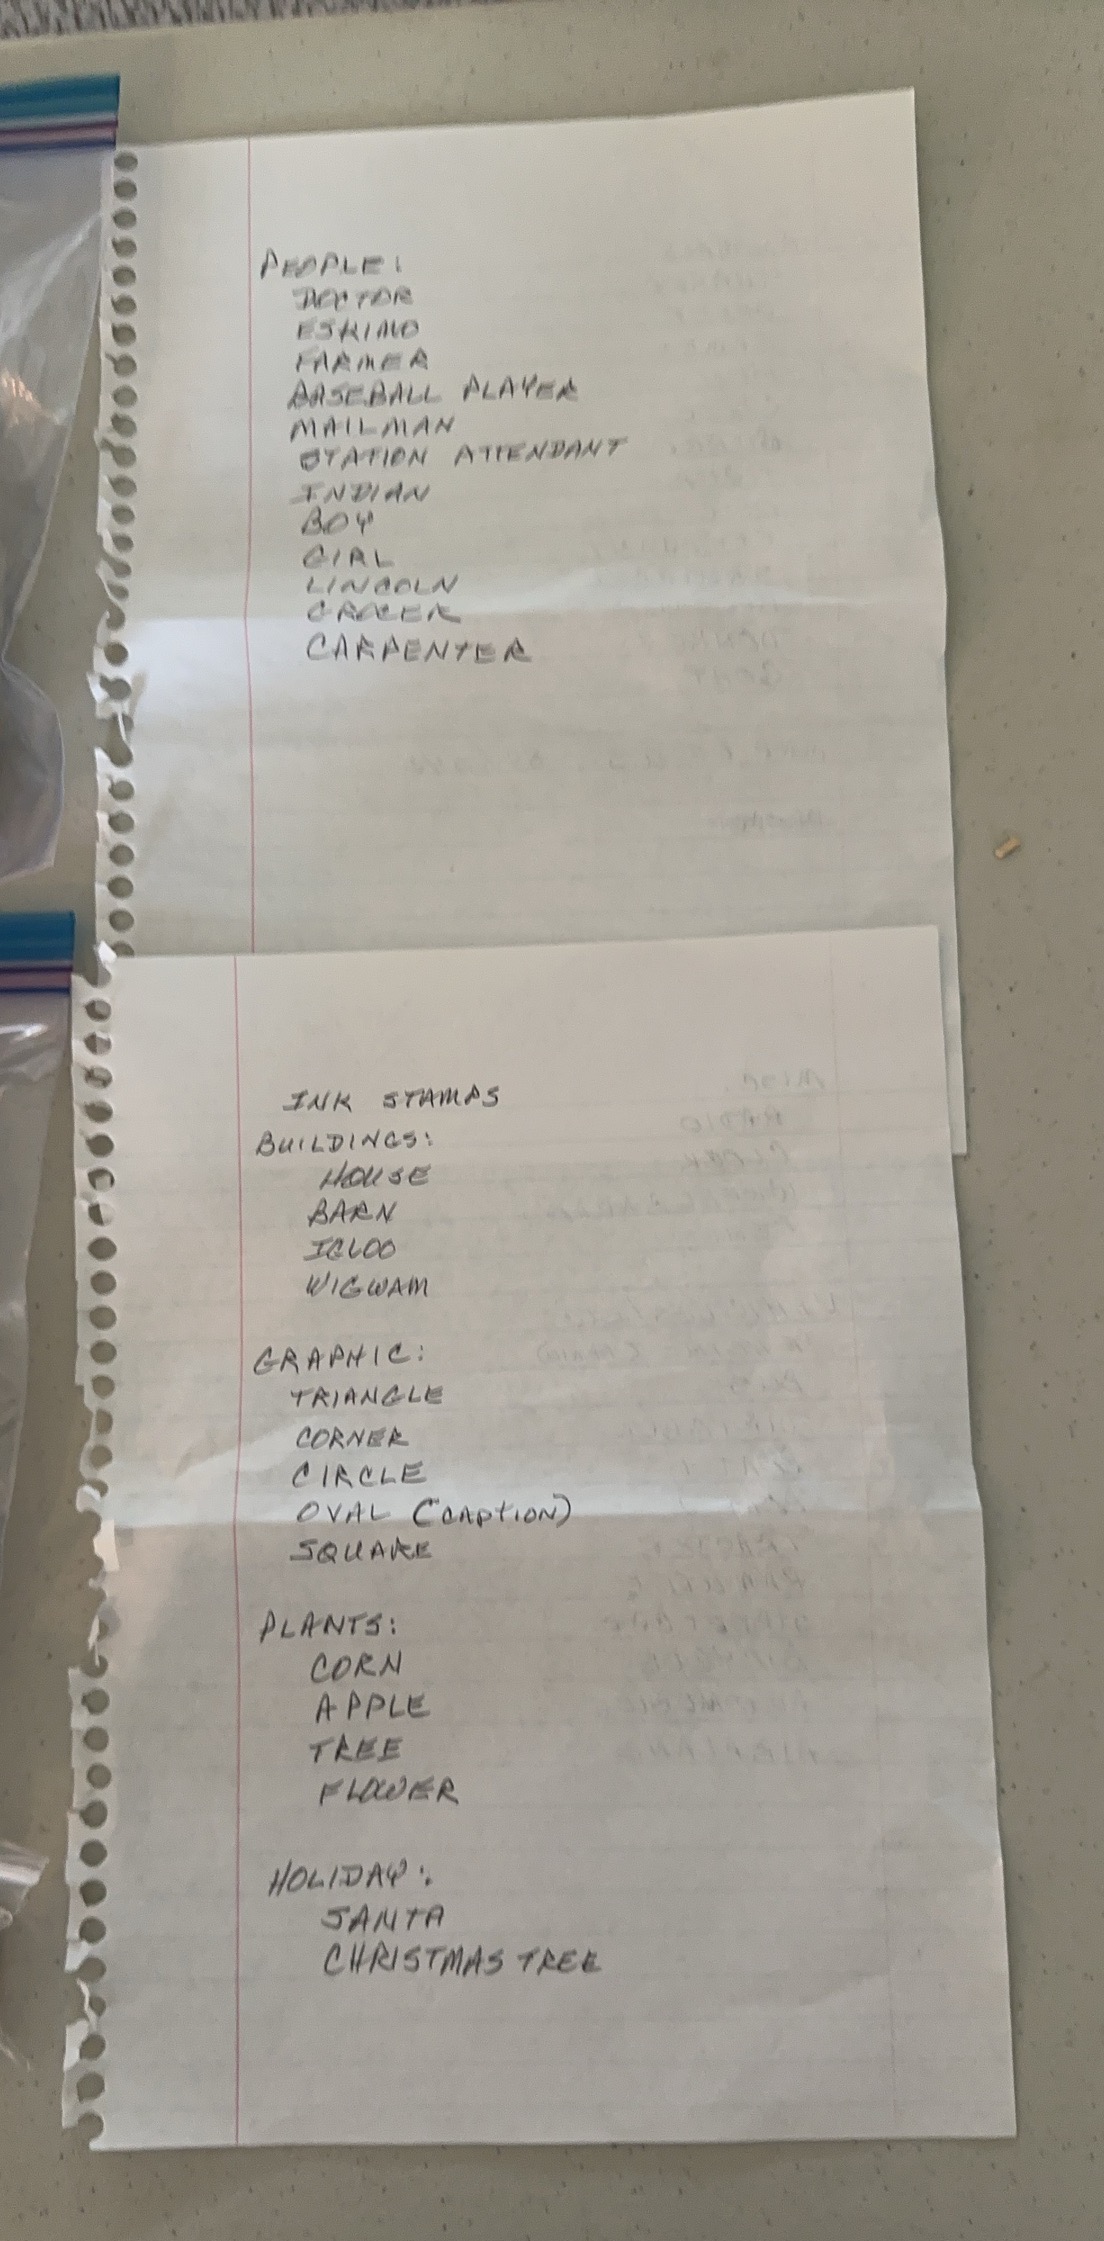 PEOPLE:
DOCTOR
ESKIMO
FARMER
BASEBALL PLAYER
MAILMAN
STATION ATTENDANT
INDIAN
BOY
GIRL
LINCOLN
GROCER
CARPENTER
INK STAMPS
BUILDINGS:
HOUSE
BARN
IGLOO
WIGWAM
GRAPHIC:
TRIANGLE
CORNER
CIRCLE
OVAL (CAPTION)
SQUARE
PLANTS:
CORN
APPLE
TREE
FLOWER
HOLIDAY:
SANTA
CHRISTMAS TREE